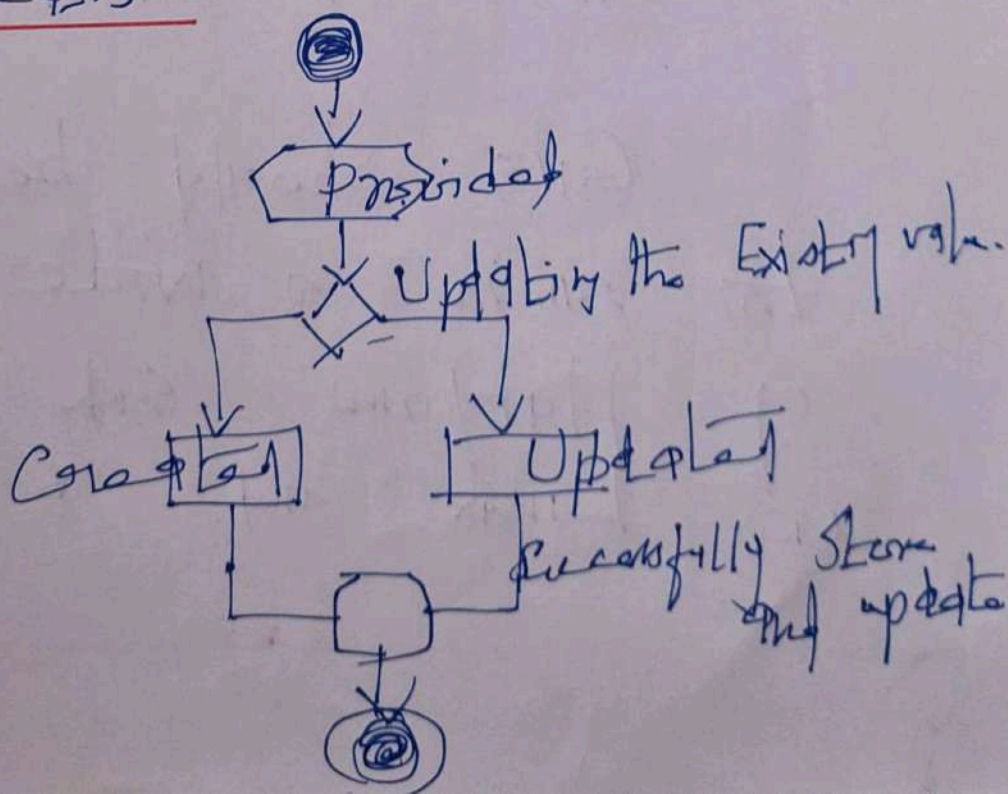 Provided
Updating the Existing value.
Created
Updated
Sucessfully Store
and update